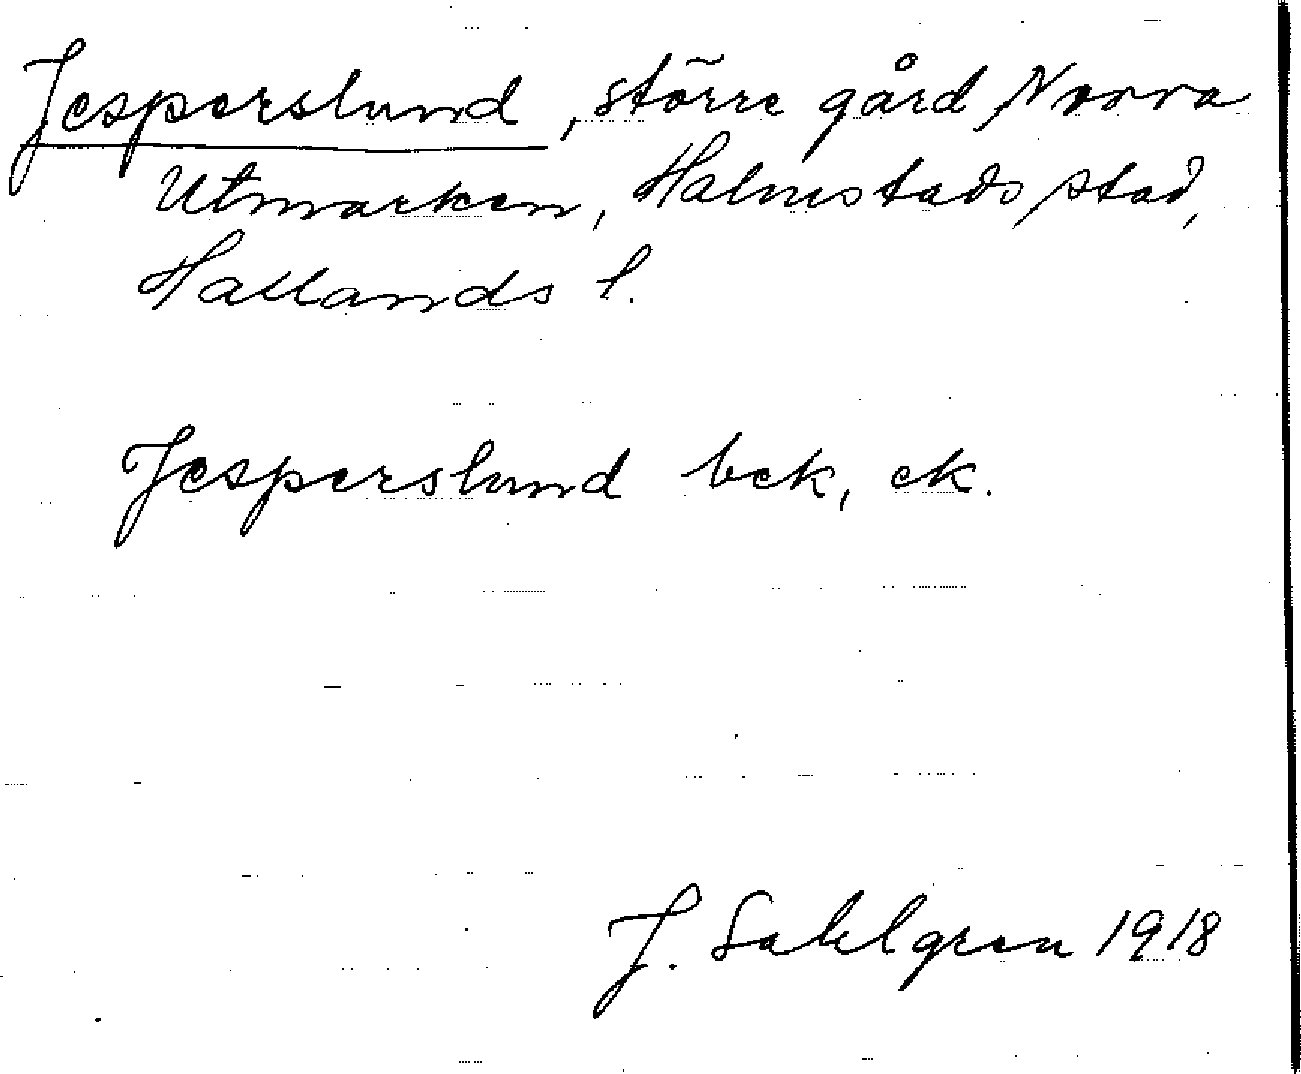 Jesperslund, större gård Norra
Utmarken, Halmstads stad,
Hallands l.
Jesperslund bek, ek.
J. Sahlgren 1918